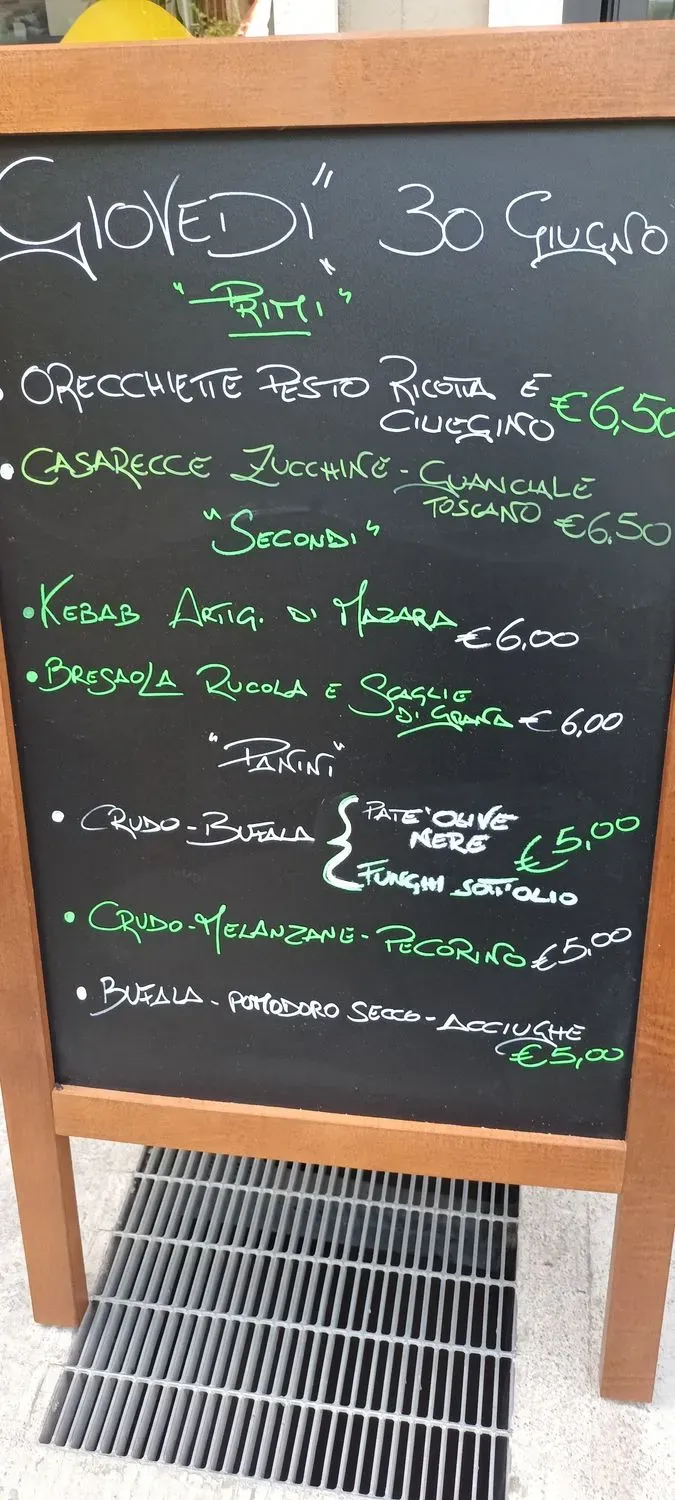 GIOVEDÌ" 30 GIUGNO
"PRIMI"
ORECCHIETTE PESTO RICOTTA E
CILIEGINO €6,50
• CASARECCE ZUCCHINE - GUANCIALE
TOSCANO €6.50
"SECONDI"
• KEBAB ARTIG. DI MAZARA €6,00
• BRESAOLA RUCOLA E SCAGLIE
DI GRANA €6,00
"PANINI"
• CRUDO - BUFALA { PATE' OLIVE
NERE €5,00
FUNGHI SOTT'OLIO
• CRUDO - MELANZANE - PECORINO €5,00
• BUFALA - POMODORO SECCO - ACCIUGHE
€5,00